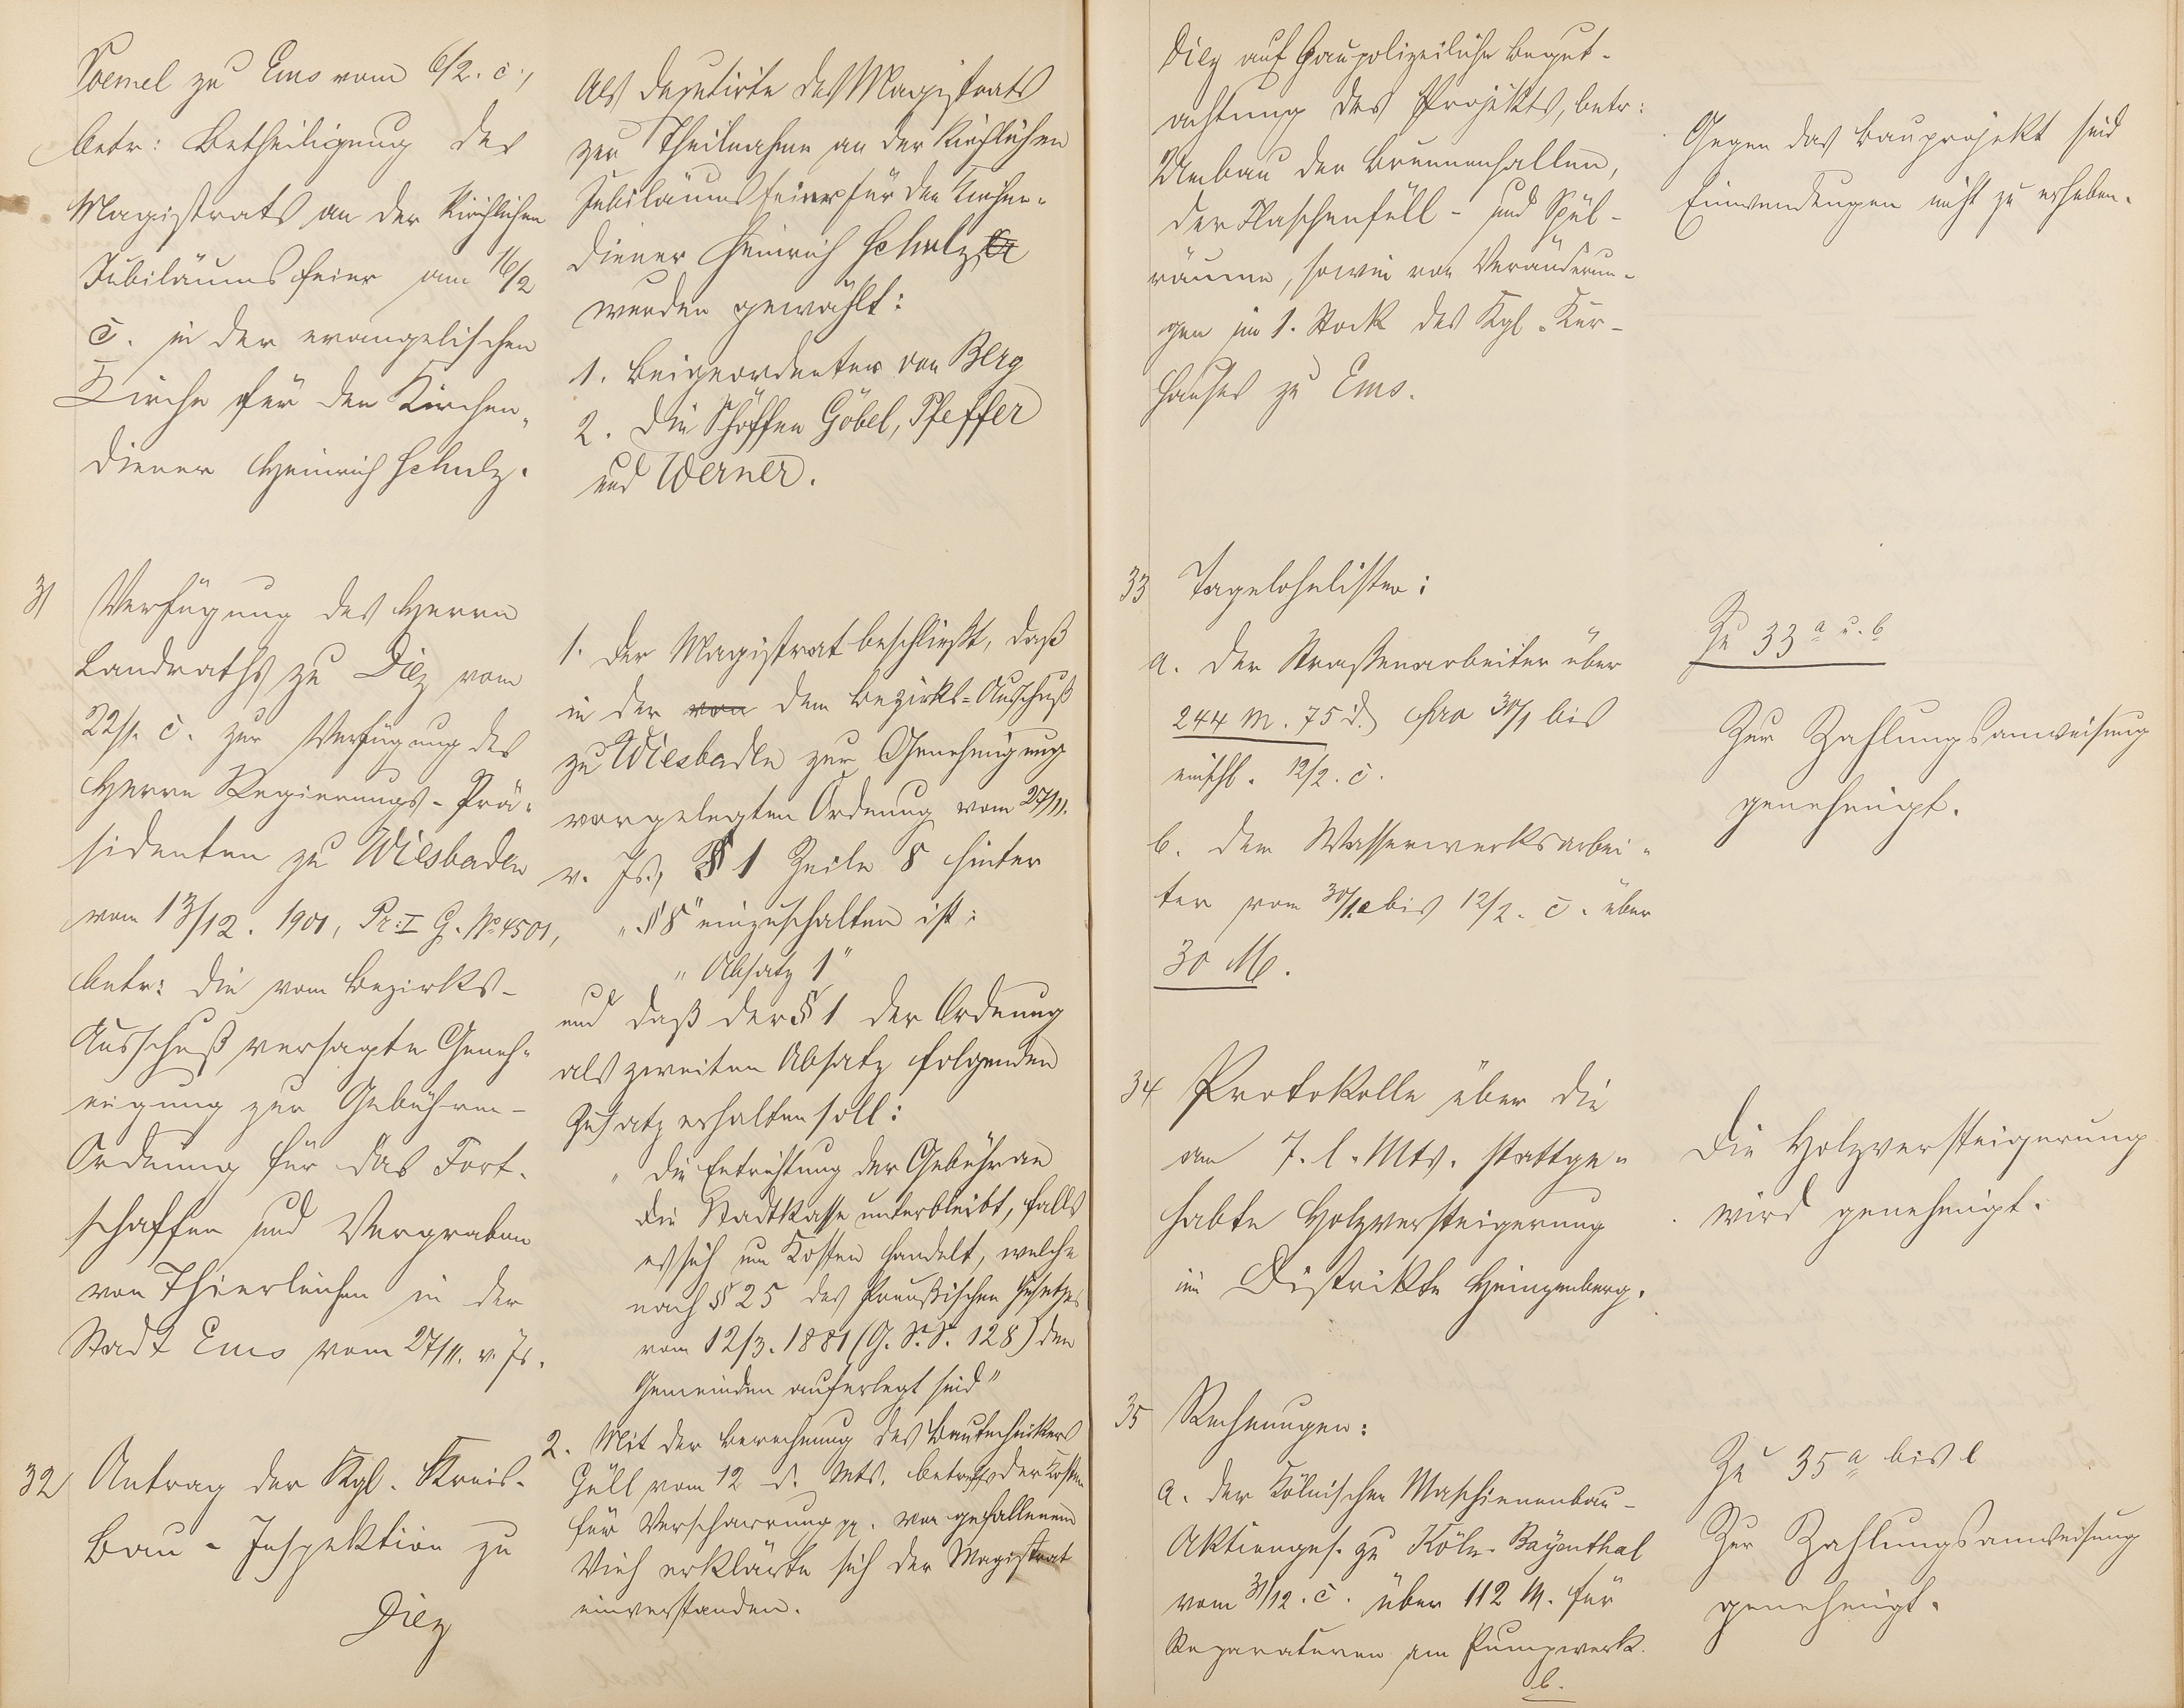 Voemel zu Ems vom 6/2. c.,
betr: Betheiligung des
Magistrats an der kirchlichen
Jubiläumsfeier am 16/2
c. in der evangelischen
Kirche für den Kirchen-
diener Heinrich Schulz.
Als Deputirte des Magistrats
zur Theilnahme an der kirchlichen
Jubiläumsfeier für den Kirchen-
diener Heinrich Schulz
werden gewählt:
1. Beigeordneter von Berg
2. Die Schöffen Göbel, Pfeffer
und Werner.
31 Verfügung des Herrn
Landraths zu Diez vom
22/1. c. zur Verfügung des
Herrn Regierungs-Prä-
sidenten zu Wiesbaden
vom 13/12. 1901, Pr: I G. No 4501,
betr: die vom Bezirks-
Ausschuß versagte Geneh-
migung zur Gebühren-
Ordnung für das Fort-
schaffen und Vergraben
von Thierleichen in der
Stadt Ems vom 27/11. v. Js.
1. Der Magistrat beschließt, daß
in der von dem Bezirks-Ausschuß
zu Wiesbaden zur Genehmigung
vorgelegten Ordnung vom 27/11.
v. Js., § 1 Zeile 8 hinter
„§ 8" einzuschalten ist:
„Absatz 1"
und daß der § 1 der Ordnung
als zweiten Absatz folgenden
Zusatz erhalten soll:
„Die Entrichtung der Gebühr an
die Stadtkasse unterbleibt, falls
es sich um Kosten handelt, welche
nach § 25 des Preußischen Gesetzes
vom 12/3. 1881 (G. S. S. 128) den
Gemeinden auferlegt sind"
2. Mit der Berechnung des Bautechnikers
Güll vom 12 d. Mts. betreffs der Kosten
für Verscharrung pp. von gefallenem
Vieh erklärte sich der Magistrat
einverstanden.
32 Antrag der Kgl. Kreis-
Bau-Inspektion zu
Diez
Diez auf baupolizeiliche Begut-
achtung des Projekts, betr:
Umbau der Brunnenhallen,
der Flaschenfüll- und Spül-
räume, sowie von Veränderun-
gen im 1. Stock des Kgl. Kur-
hauses zu Ems.
Gegen das Bauprojekt sind
Einwendungen nicht zu erheben.
33 Tagelohnlisten:
a. der Straßenarbeiter über
244 M. 75 d. pro 30/1 bis
einschl. 12/2. c.
b. dem Wasserwerksarbei-
ter vom 30/1. bis 12/2. c. über
30 M.
Zu 33 a u. b
Zur Zahlungsanweisung
genehmigt.
34 Protokolle über die
am 7. l. Mts. stattge-
habte Holzversteigerung
im Distrikte Heingenberg.
Die Holzversteigerung
wird genehmigt.
35 Rechnungen:
a. der Kölnischen Maschinenbau-
Aktienges. zu Köln-Bayenthal
vom 31/12. c. über 112 M. für
Reparaturen am Pumpwerk.
b.
Zu 35 a bis l
Zur Zahlungsanweisung
genehmigt.